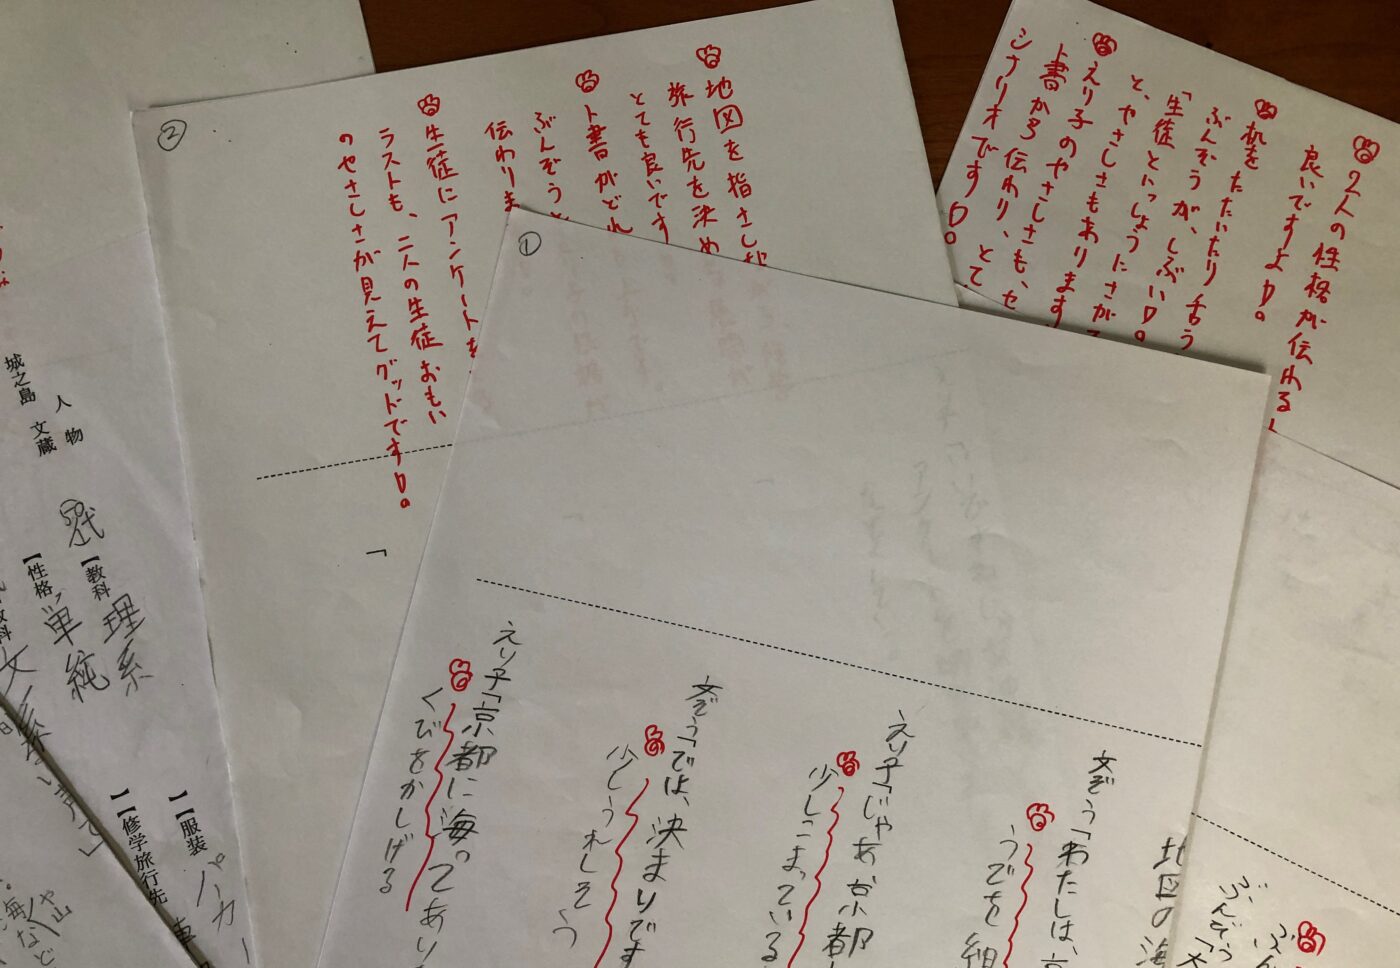 2人の性格が伝わる
良いですよ
机をたたいたり
ぶんぞうが、しぶい
「生徒といっしょうに
と、やさしさもあります
えり子のやさしさも、
ト書から伝わり、とて
シナリオです
②
地図を指さし
旅行先を決め
とても良いです
ト書がどれ
ぶんぞうと
伝わりま
生徒にアンケートを
ラストも、二人の生徒おもい
のやさしさが見えてグッドです
「
①
地図の海
文ぞう「わたしは、京
うでを組
えり子「じゃあ京都
少しこまっている
文ぞう「では、決まりです
少しうれしそう
えり子「京都に海ってあり
くびをかしげる
ぶんぞう「大
人物
城之島 文蔵
50代
【教科 理系
【性格 単純
】【服装 パーカー
】【修学旅行先
海など
や山